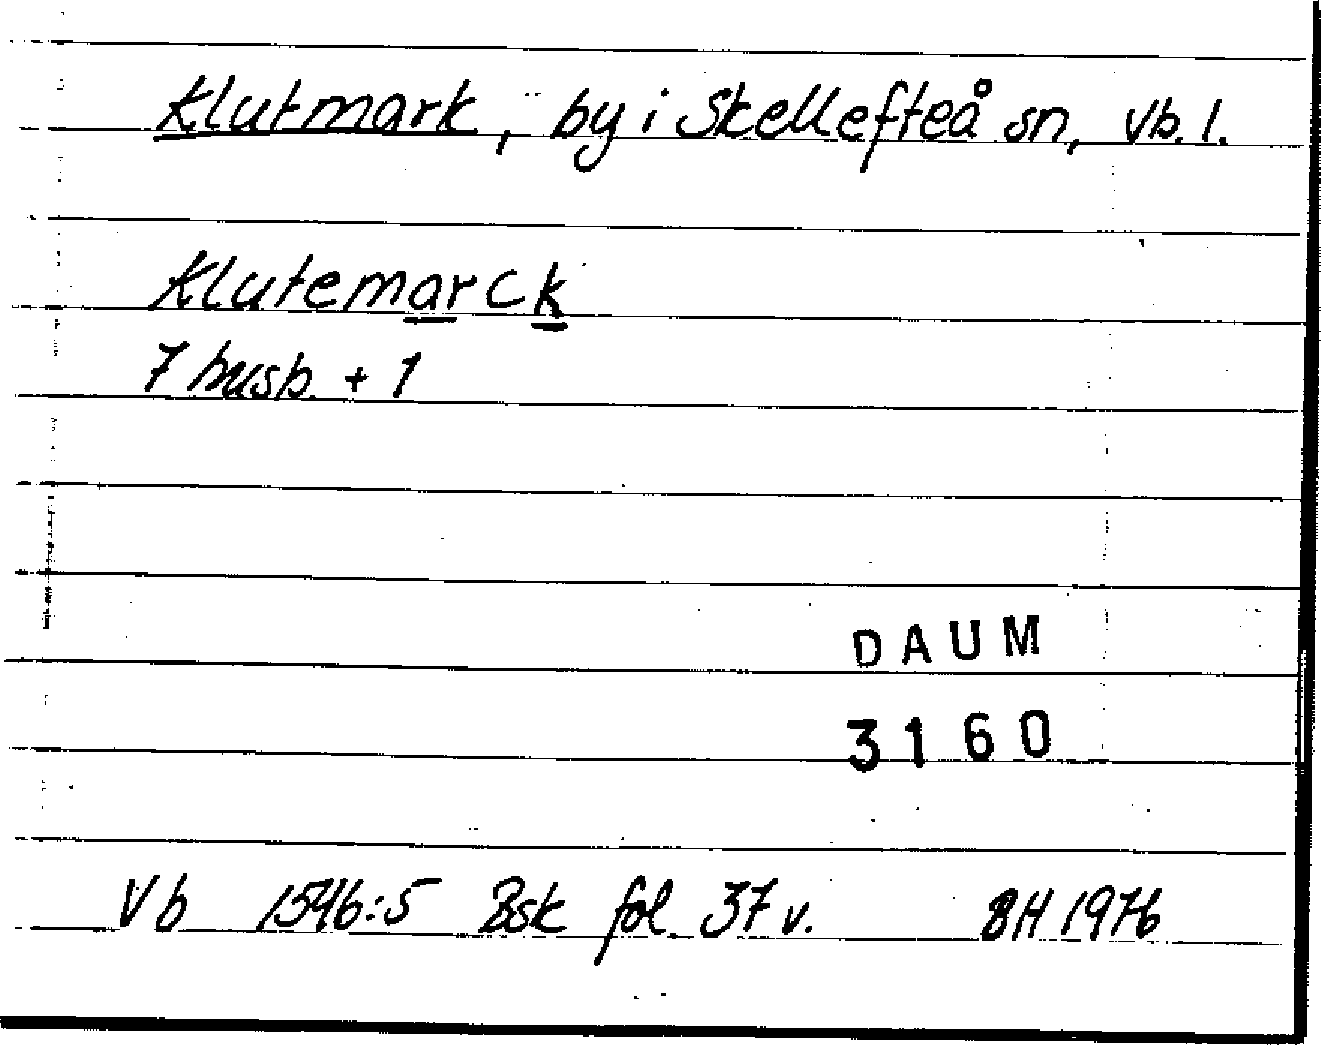 Klutmark, by i Skellefteå sn, Vb. l.
Klutemarck
7 husb. + 1
DAUM
3160
Vb 1546:5 Bsk fol. 37 v. BH 1976